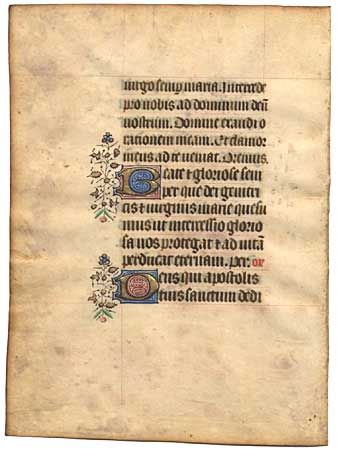 uirgo semp maria. Intercede
pro nobis ad dominum deū
nostrum. Domine exaudi o
rationem meam. Et clamor
meus ad te ueniat. Oremus.
Beate et gloriose sem
per que dei genitri
cis et uirginis marie quesu
mus ut intercessio glorio
sa nos protegat et ad uitā
perducat eternam. per. or
Deus qui apostolis
tuis sanctum dedi